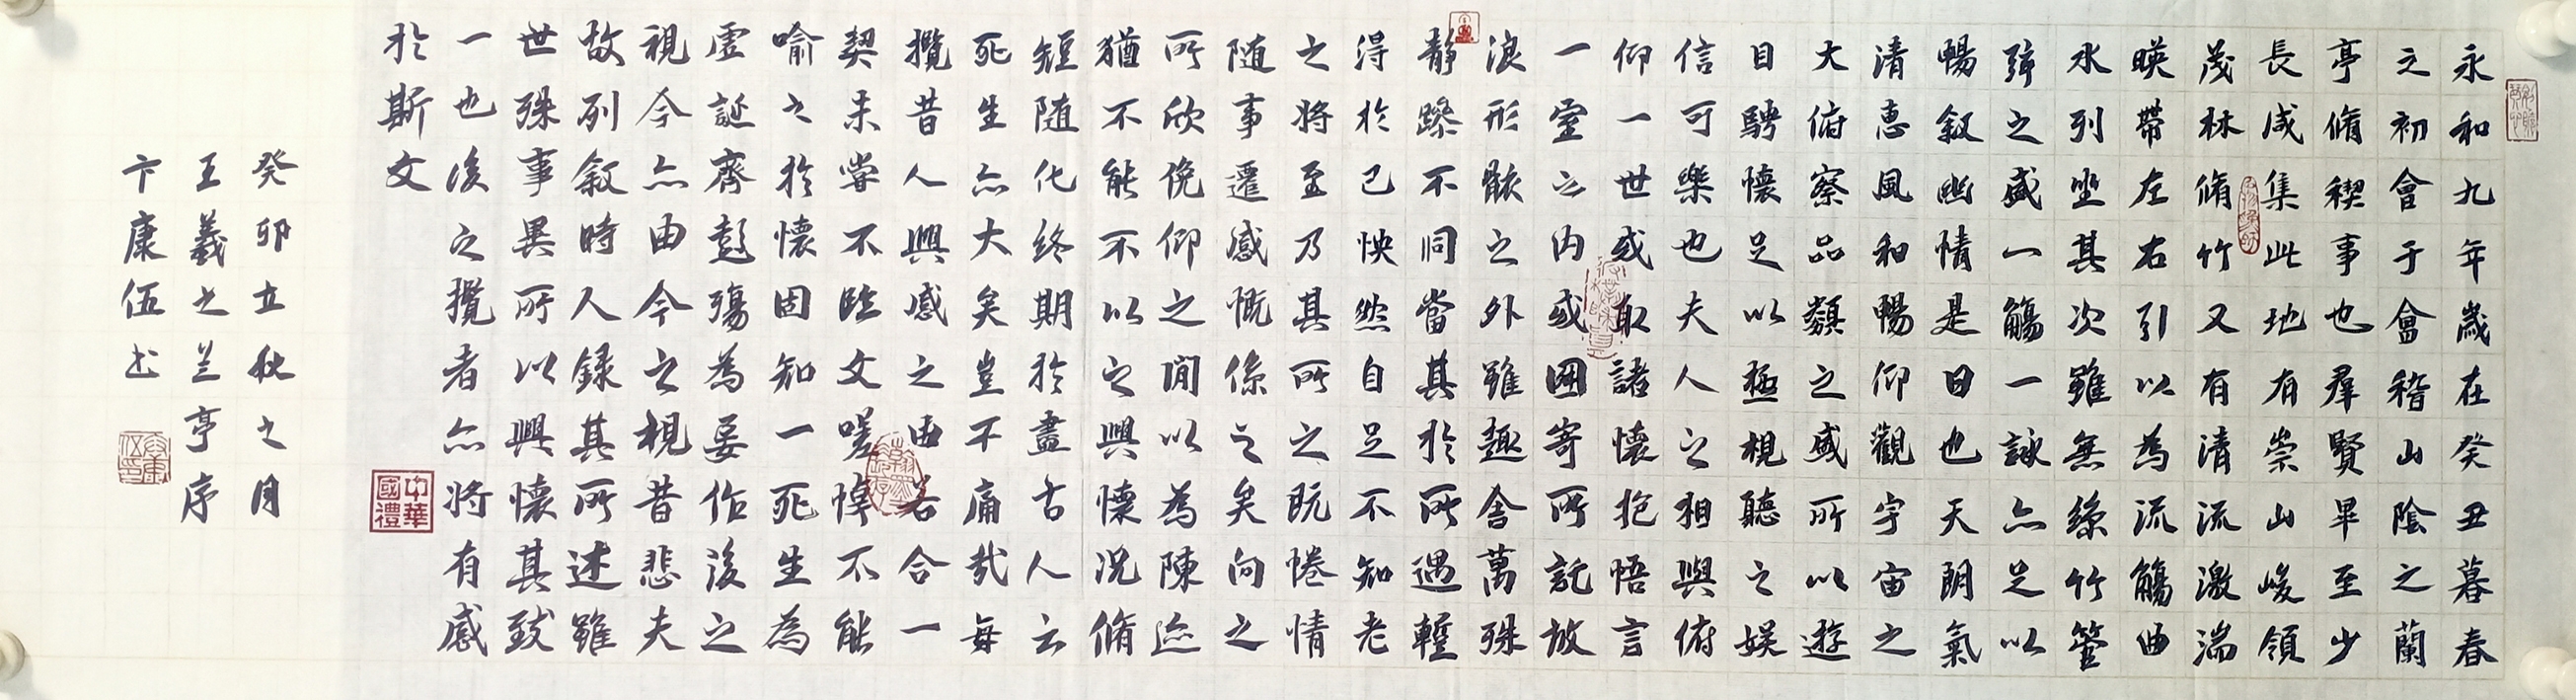 永和九年歲在癸丑暮春
之初會于會稽山陰之蘭
亭脩稧事也羣賢畢至少
長咸集此地有崇山峻領
茂林脩竹又有清流激湍
暎帶左右引以為流觴曲
水列坐其次雖無絲竹管
弦之盛一觴一詠亦足以
暢叙幽情是日也天朗氣
清惠風和暢仰觀宇宙之
大俯察品類之盛所以遊
目騁懷足以極視聽之娛
信可樂也夫人之相與俯
仰一世或取諸懷抱悟言
一室之内或因寄所託放
浪形骸之外雖趣舍萬殊
靜躁不同當其於所遇
得於己怏然自足不知老
之將至乃其所之既惓情
随事遷感慨係之矣向之
所欣俛仰之間以為陳迹
猶不能不以之興懷況脩
短随化終期於盡古人云
死生亦大矣豈不痛哉每
攬昔人興感之由若合一
契未嘗不臨文嗟悼不能
喻之於懷固知一死生為
虛誕齊彭殤為妄作後之
視今亦由今之視昔悲夫
故列叙時人録其所述雖
世殊事異所以興懷其致
一也後之攬者亦將有感
於斯文
中華國禮
癸卯立秋之月
王羲之兰亭序
卞康伍书